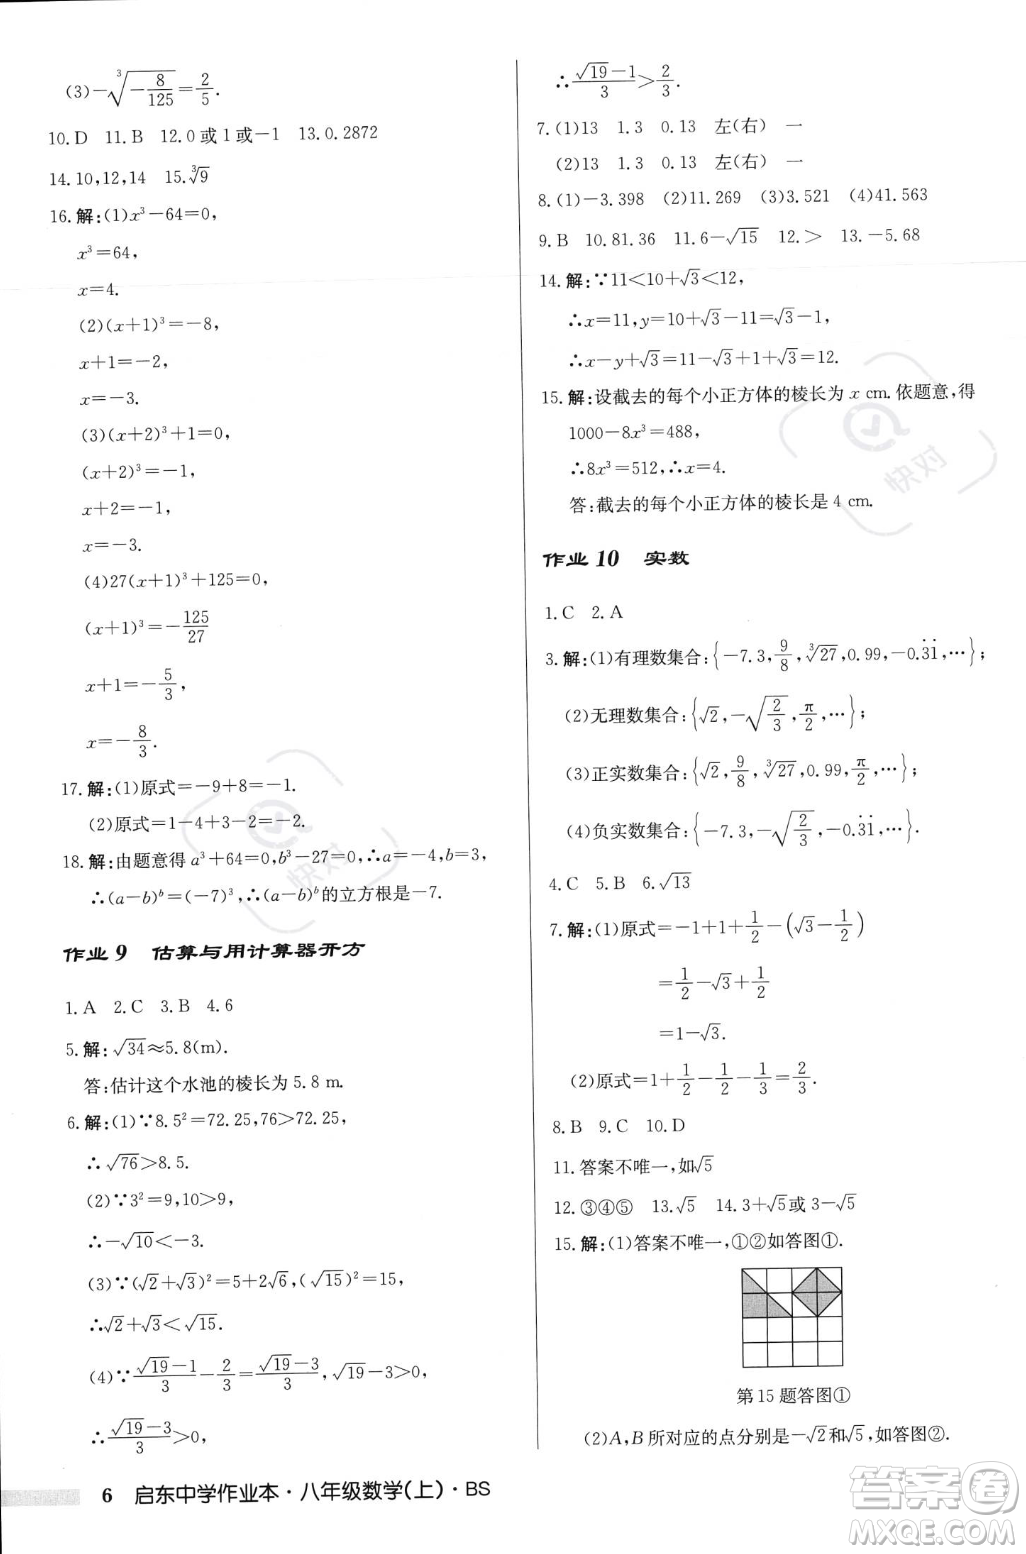 (3)−∛(−8/125)=2/5.
10.D  11.B  12.0或1或−1  13.0.2872
14.10,12,14  15.∛9
16.解:(1)x³−64=0,
x³=64,
x=4.
(2)(x+1)³=−8,
x+1=−2,
x=−3.
(3)(x+2)³+1=0,
(x+2)³=−1,
x+2=−1,
x=−3.
(4)27(x+1)³+125=0,
(x+1)³=−125/27
x+1=−5/3,
x=−8/3.
17.解:(1)原式=−9+8=−1.
(2)原式=1−4+3−2=−2.
18.解:由题意得a³+64=0,b³−27=0,∴a=−4,b=3,
∴(a−b)ᵇ=(−7)³,∴(a−b)ᵇ的立方根是−7.
作业9  估算与用计算器开方
1.A  2.C  3.B  4.6
5.解:√34≈5.8(m).
答:估计这个水池的棱长为5.8 m.
6.解:(1)∵8.5²=72.25,76>72.25,
∴√76>8.5.
(2)∵3²=9,10>9,
∴−√10<−3.
(3)∵(√2+√3)²=5+2√6,(√15)²=15,
∴√2+√3<√15.
(4)∵(√19−1)/3−2/3=(√19−3)/3,√19−3>0,
∴(√19−3)/3>0,
∴(√19−1)/3>2/3.
7.(1)13  1.3  0.13  左(右)  一
(2)13  1.3  0.13  左(右)  一
8.(1)−3.398  (2)11.269  (3)3.521  (4)41.563
9.B  10.81.36  11.6−√15  12.>  13.−5.68
14.解:∵11<10+√3<12,
∴x=11,y=10+√3−11=√3−1,
∴x−y+√3=11−√3+1+√3=12.
15.解:设截去的每个小正方体的棱长为x cm.依题意,得
1000−8x³=488,
∴8x³=512,∴x=4.
答:截去的每个小正方体的棱长是4 cm.
作业10  实数
1.C  2.A
3.解:(1)有理数集合:{−7.3,9/8,∛27,0.99,−0.3̇1̇,…};
(2)无理数集合:{√2,−√(2/3),π/2,…};
(3)正实数集合:{√2,9/8,∛27,0.99,π/2,…};
(4)负实数集合:{−7.3,−√(2/3),−0.3̇1̇,…}.
4.C  5.B  6.√13
7.解:(1)原式=−1+1+1/2−(√3−1/2)
=1/2−√3+1/2
=1−√3.
(2)原式=1+1/2−1/2−1/3=2/3.
8.B  9.C  10.D
11.答案不唯一,如√5
12.③④⑤  13.√5  14.3+√5或3−√5
15.解:(1)答案不唯一,①②如答图①.
第15题答图①
(2)A,B所对应的点分别是−√2和√5,如答图②.
6  启东中学作业本·八年级数学(上)·BS
快对
快对
答案圈
MXQE.COM